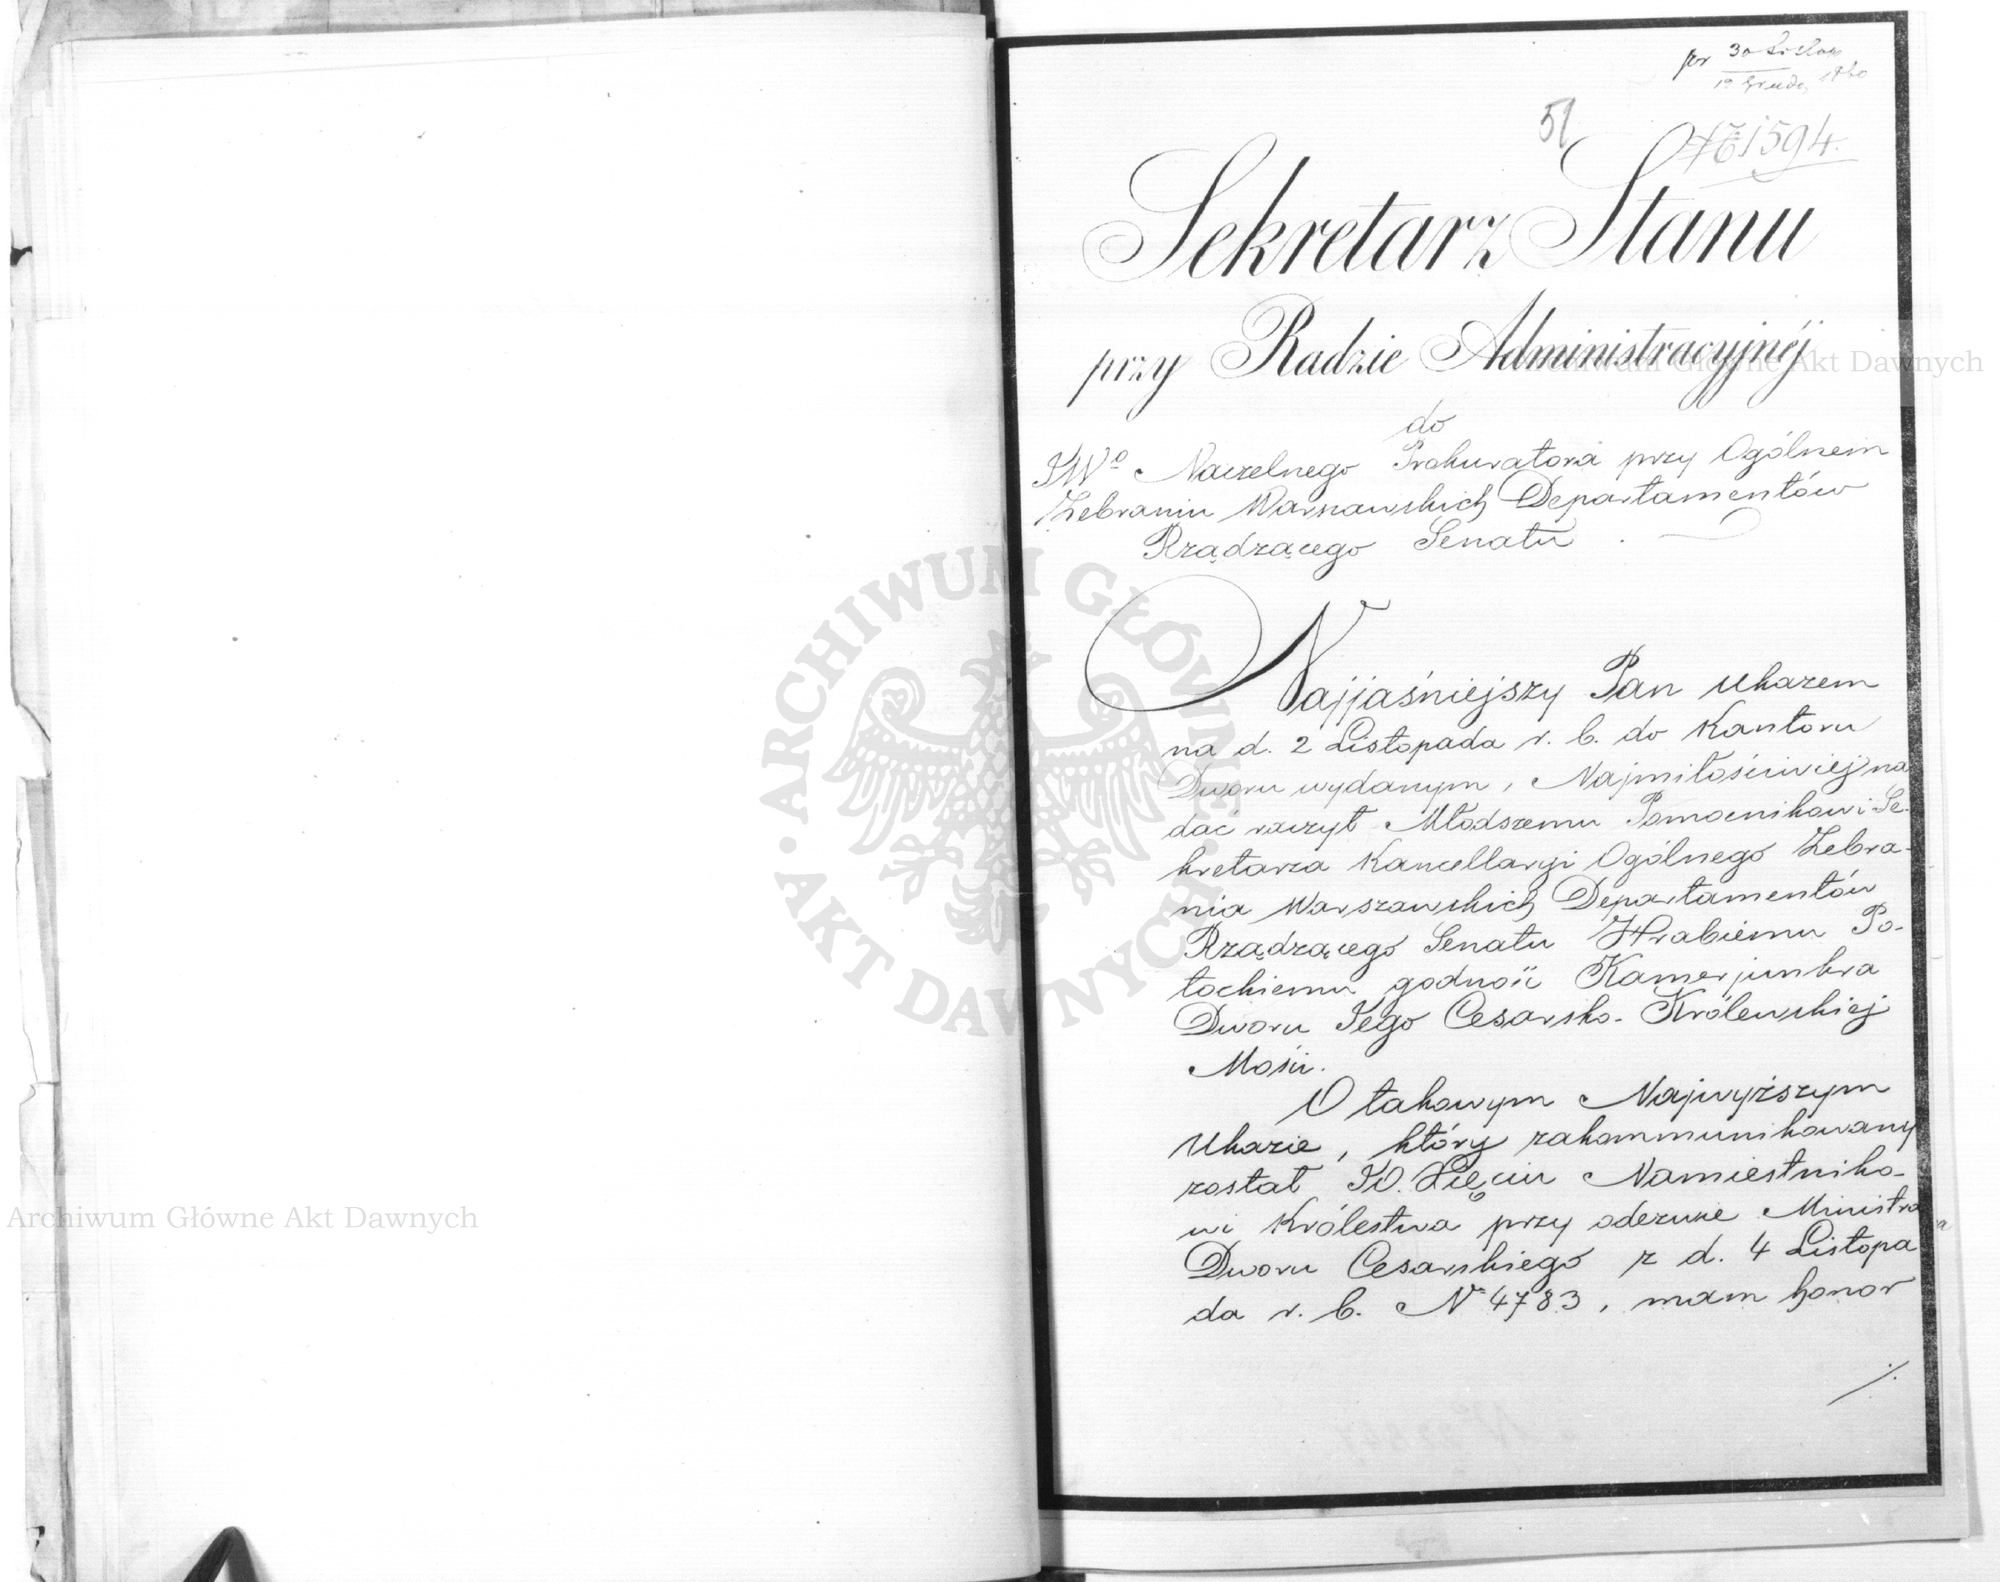 pr 30 Listop
1º Grud. 1860
51
1594.
Sekretarz Stanu
przy Radzie Administracyjnéj
do
JWº Naczelnego Prokuratora przy Ogólnem
Zebraniu Warszawskich Departamentów
Rządzącego Senatu.
Najjaśniejszy Pan Ukazem
na d. 2 Listopada r. b. do Kantoru
Dworu wydanym, Najmiłościwiej na
dać raczył Młodszemu Pomocnikowi Se-
kretarza Kancellaryi Ogólnego Zebra-
nia Warszawskich Departamentów
Rządzącego Senatu Hrabiemu Po-
tockiemu godność Kamerjunkra
Dworu Jego Cesarsko-Królewskiej
Mości.
O takowym Najwyższym
Ukazie, który zakommunikowany
został JO. Xięciu Namiestniko-
wi Królestwa przy odezwie Ministra
Dworu Cesarskiego z d. 4 Listopa
da r. b. Nº 4783, mam honor
./.
ARCHIWUM GŁÓWNE AKT DAWNYCH
Archiwum Główne Akt Dawnych
Archiwum Główne Akt Dawnych